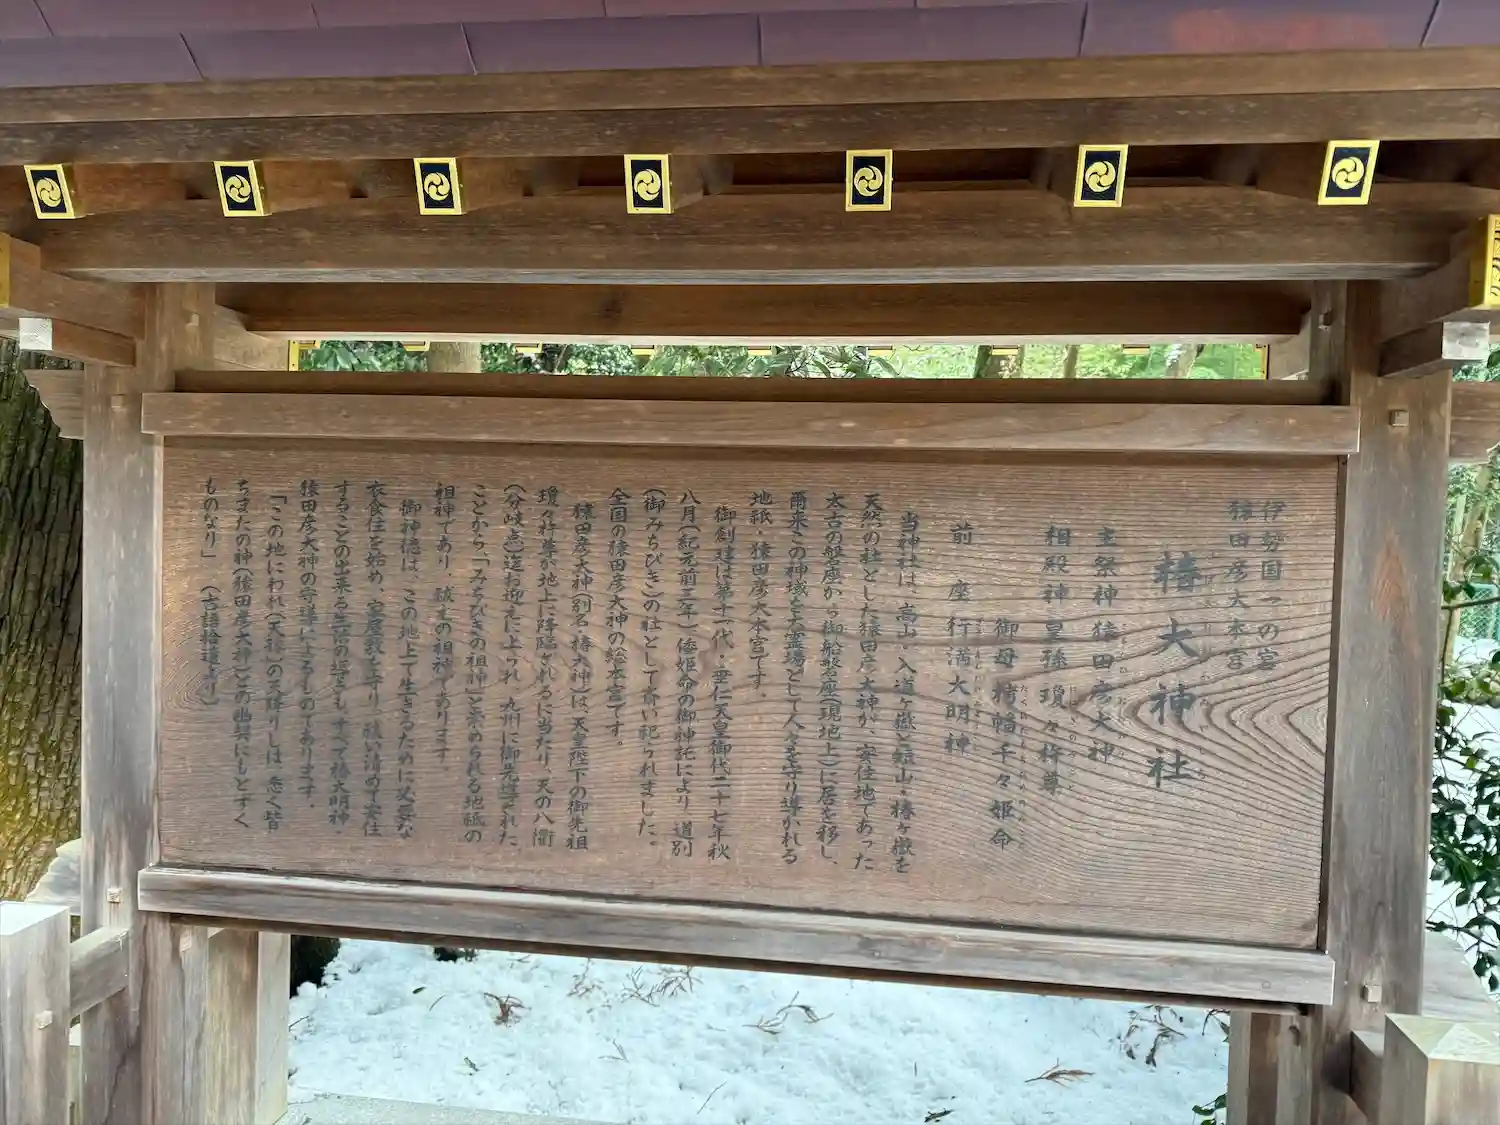 伊勢国一の宮
猿田彦大本宮
椿大神社
主祭神 猿田彦大神
相殿神 皇孫 瓊々杵尊
御母 栲幡千々姫命
前座 行満大明神
当神社は、高山・入道ヶ嶽と短山・椿ヶ嶽を
天然の社とした猿田彦大神が、安住地であった
太古の磐座から御船磐座(現地上)に居を移し、
爾来この神域を大霊場として人々を守り導かれる
地祇・猿田彦大本宮です。
御創建は第十一代・垂仁天皇御代二十七年秋
八月(紀元前三年)倭姫命の御神託により「道別
(御みちびき)の社として斎い祀られました。
全国の猿田彦大神の総本宮です。
猿田彦大神(別名 椿大神)は、天皇陛下の御先祖
瓊々杵尊が地上に降臨されるに当たり、天の八衢
(分岐点)迄お迎えに上られ、九州に御先導された
ことから「みちびきの祖神」と崇められる地祇の
祖神であり、祓主の祖神であります。
御神徳は、この地上で生きるために必要な
衣食住を始め、家屋敷を守り、祓い清めて安住
することの出来る生活の総ても、すべて椿大明神・
猿田彦大神の守導によるものであります。
「この地にわれ(天椽)の天降りしは、悉く皆
ちまたの神(猿田彦大神)との幽契にもとずく
ものなり」(古語拾遺より)